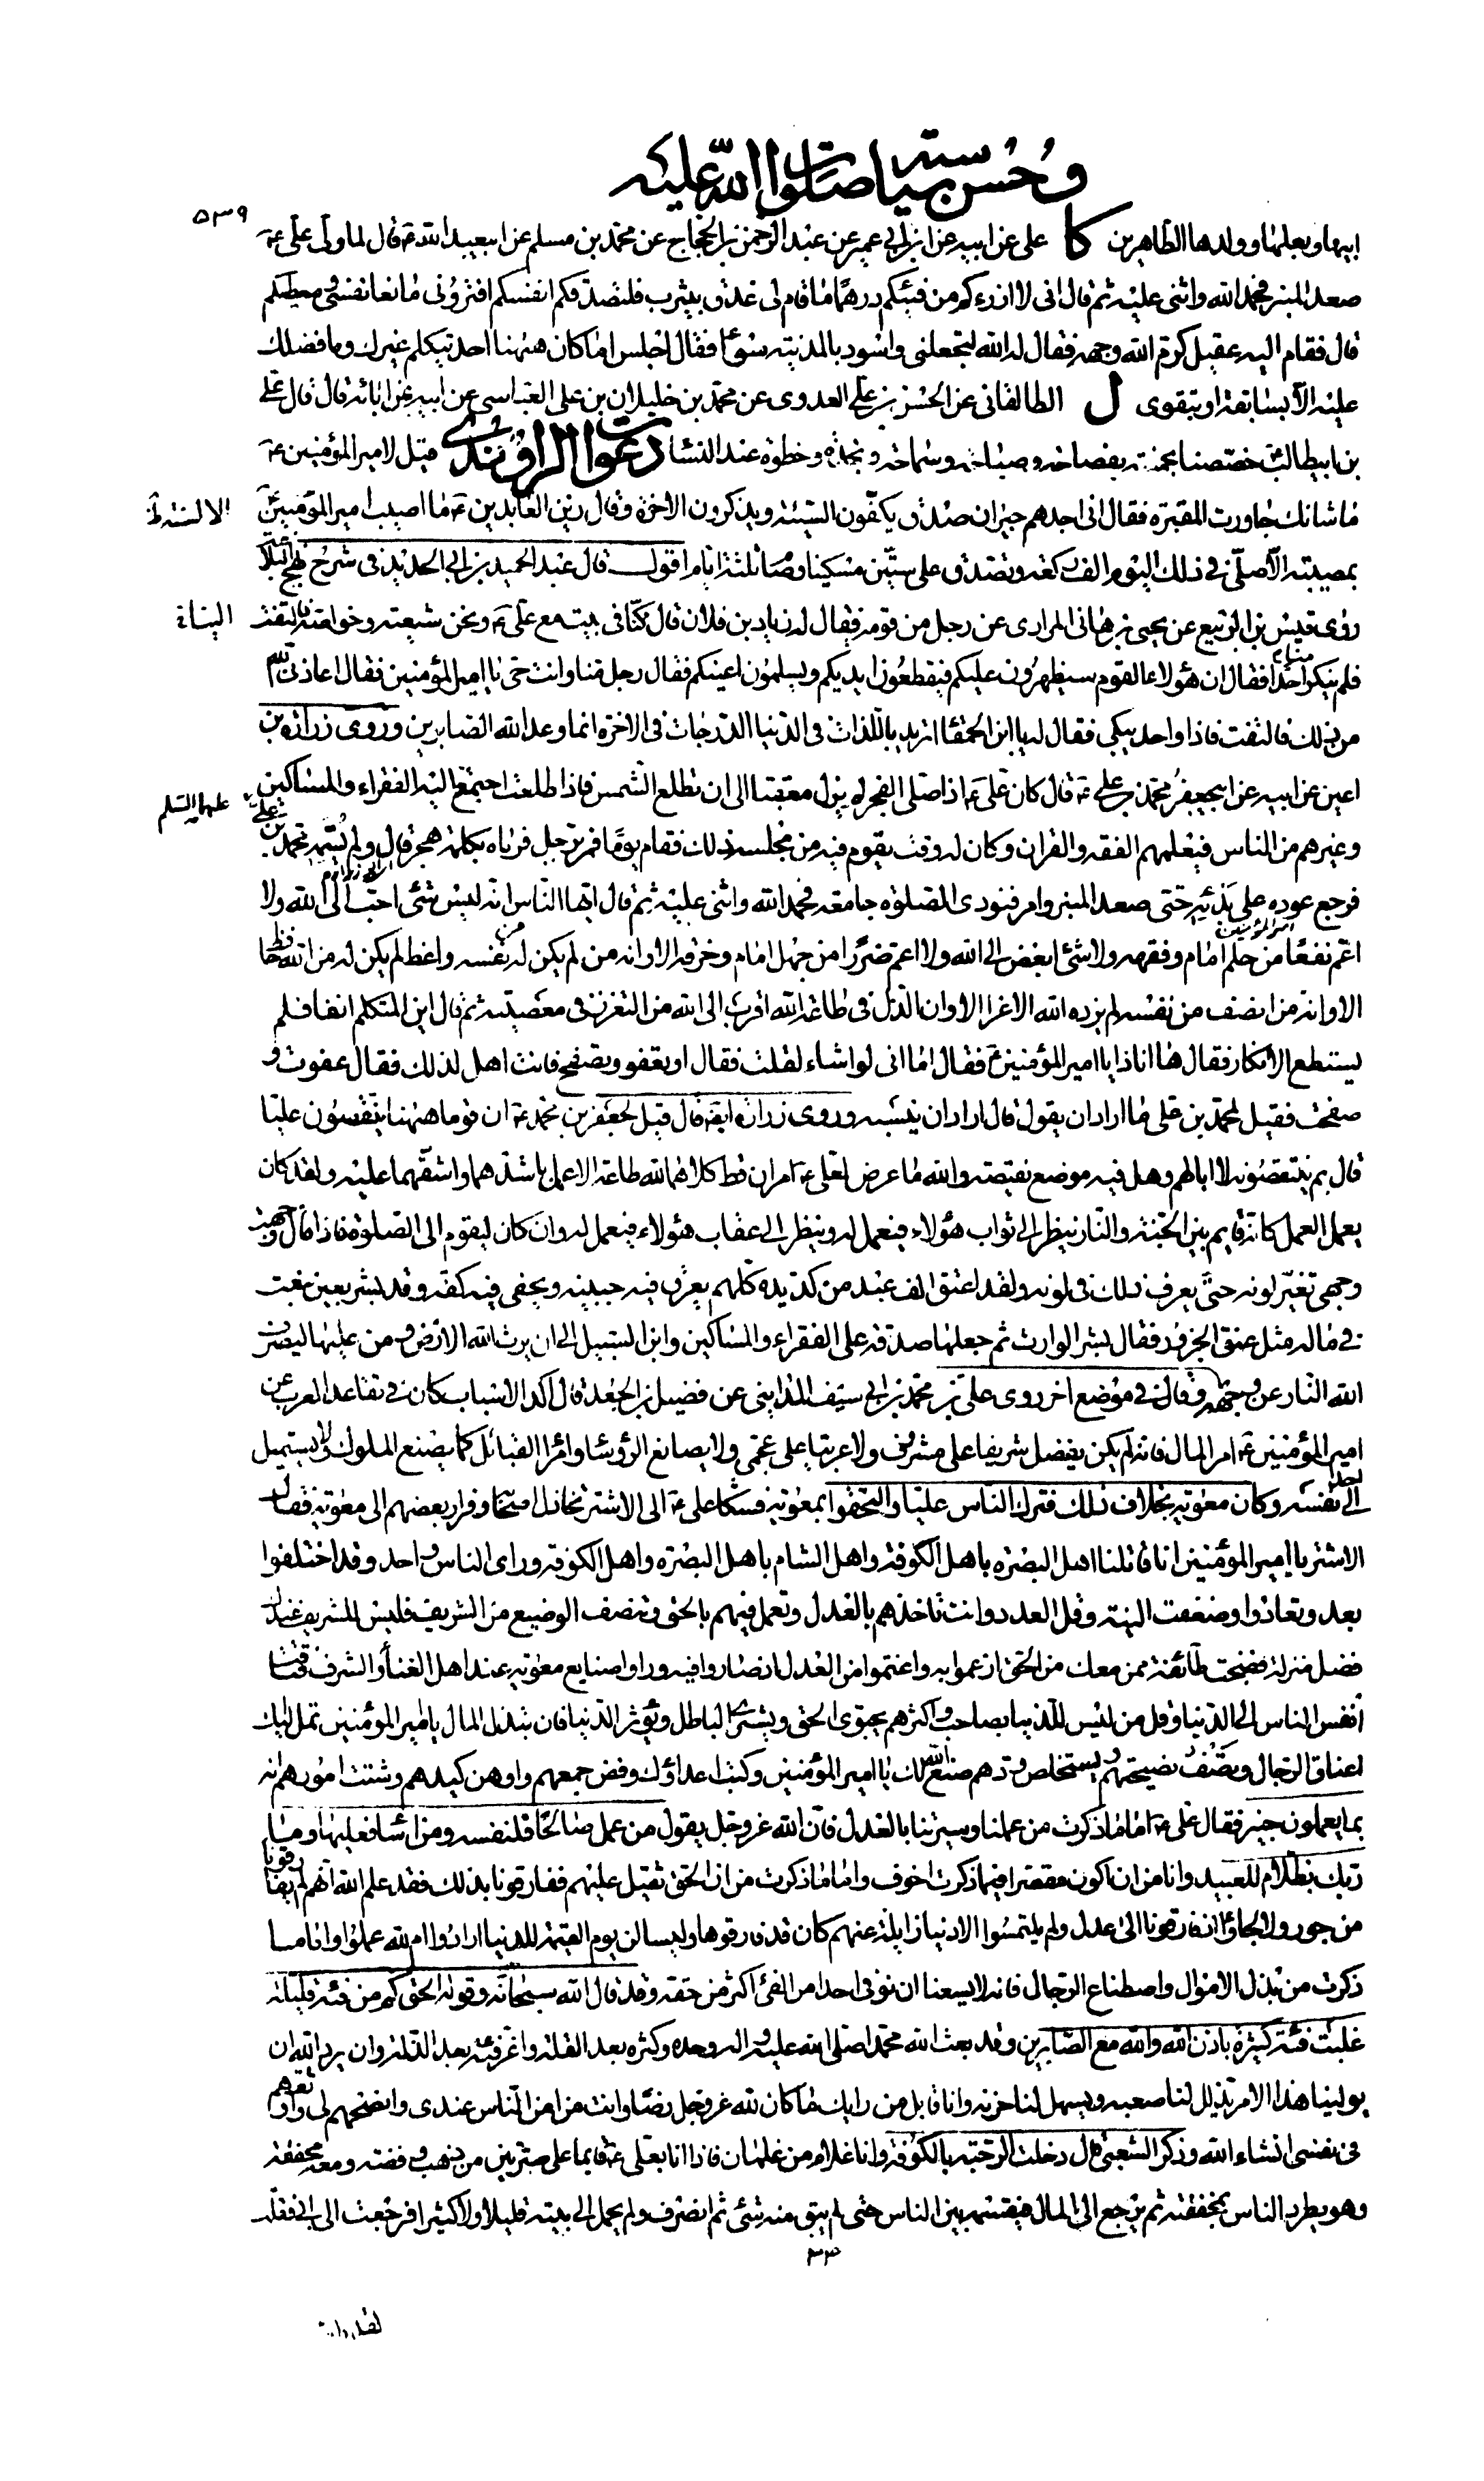 وحُسن سياسته صلوات الله عليه
٥٣٩
ابيها وبعلها وولدها الطاهرين كا على عن ابيه عن ابن ابي عمير عن عبد الرحمن بن الحجاج عن محمد بن مسلم عن ابيعبد الله ع قال لما ولى على ع
صعد المنبر فحمد الله واثنى عليه ثم قال انى لا ارزءكم من فيئكم درهما ما قام لى عذق بيثرب فلتصدقكم انفسكم افترونى مانعا نفسى ومعطيكم
قال فقام اليه عقيل كرم الله وجهه فقال له الله لتجعلنى واسود بالمدينة سواء فقال اجلس اما كان ههنا احد يتكلم غيرك وما فضلك
عليه الا بسابقة او بتقوى ل الطالقانى عن الحسن بن على العدوى عن محمد بن خليلان بن على العباسى عن ابيه عن ابائه قال قال على
بن ابيطالب ع خصصنا بخمسة بفصاحة وصباحة وسماحة ونجدة وحظوة عند النساء دعوات الراوندي قيل لامير المؤمنين ع
ما شانك جاورت المقبرة فقال انى اجدهم جيران صدق يكفون السيئة ويذكرون الاخرة وقال زين العابدين ع ما اصيب امير المؤمنين ع
الالسنة ظ
بمصيبة الا صلى فى ذلك اليوم الف ركعة وتصدق على ستين مسكينا وصام ثلثة ايام اقول قال عبد الحميد بن ابي الحديد فى شرح نهج البلاغة
روى قيس بن الربيع عن يحيى بن هانى المرادى عن رجل من قومه يقال له زياد بن فلان قال كنا فى بيت مع على ع ونحن شيعته وخواصه فالتفت
الينا ظ
فلم ينكر منا احدا فقال ان هؤلاء القوم سيظهرون عليكم فيقطعون ايديكم ويسملون اعينكم فقال رجل منا وانت حى يا امير المؤمنين فقال اعاذنى الله
من ذلك فالتفت فاذا واحد يبكى فقال له يا ابن الحمقاء اتريد باللذات فى الدنيا الدرجات فى الاخرة انما وعد الله الصابرين وروى زرارة بن
اعين عن ابيه عن ابيجعفر محمد بن على ع قال كان على ع اذا صلى الفجر لم يزل معقبا الى ان تطلع الشمس فاذا طلعت اجتمع اليه الفقراء والمساكين
عليهما السلم
وغيرهم من الناس فيعلمهم الفقه والقران وكان له وقت يقوم فيه من مجلسه ذلك فقام يوما فمر برجل فرماه بكلمة هجر قال ولم يسمه محمد بن على
فرجع عوده على بدئه حتى صعد المنبر وامر فنودى الصلوة جامعة فحمد الله واثنى عليه ثم قال ايها الناس انه ليس شئ احب الى الله ولا
اعم نفعا من حلم امام وفقهه ولا شئ ابغض الى الله ولا اعم ضررا من جهل امام وخرقه الا وانه من لم يكن له من نفسه واعظ لم يكن له من الله حافظ
الا وانه من انصف من نفسه لم يزده الله الا عزا الا وان الذل فى طاعة الله اقرب الى الله من التعزز فى معصيته ثم قال اين المتكلم انفا فلم
يستطع الانكار فقال ها انا ذا يا امير المؤمنين ع فقال اما انى لو اشاء لقلت فقال او تعفو وتصفح فانت اهل لذلك فقال عفوت و
صفحت فقيل لمحمد بن على ما اراد ان يقول قال اراد ان ينسبه وروى زرارة ايضا قال قيل لجعفر بن محمد ع ان قوما ههنا ينتقصون عليا
قال بم ينتقصونه لا ابا لهم وهل فيه موضع نقيصة والله ما عرض لعلى ع امران قط كلاهما لله طاعة الا عمل باشدهما واشقهما عليه ولقد كان
يعمل العمل كانه قايم بين الجنة والنار ينظر الى ثواب هؤلاء فيعمل له وينظر الى عقاب هئولاء فيعمل له وان كان ليقوم الى الصلوة فاذا قال وجهت
وجهى تغير لونه حتى يعرف ذلك فى لونه ولقد اعتق الف عبد من كد يده كلهم يعرق فيه جبينه ويحفى فيه كفه وقد بشر بعين نبعت
فى ماله مثل عنق الجزور فقال بشر الوارث ثم جعلها صدقة على الفقراء والمساكين وابن السبيل الى ان يرث الله الارض ومن عليها ليصرف
الله النار عن وجهه وقال فى موضع اخر روى على بن محمد بن ابي سيف المداينى عن فضيل بن الجعد قال اكد الاسباب كان فى تقاعد العرب عن
امير المؤمنين ع امر المال فانه لم يكن يفضل شريفا على مشروف ولا عربيا على عجمى ولا يصانع الرؤساء وامراء القبائل كما يصنع الملوك ولا يستميل
احدا الى نفسه وكان معوية بخلاف ذلك فترك الناس عليا والتحقوا بمعوية فشكا على ع الى الاشتر تخاذل اصحابه وفرار بعضهم الى معوية فقال
الاشتر يا امير المؤمنين انا قاتلنا اهل البصرة باهل الكوفة واهل الشام باهل البصرة واهل الكوفة وراى الناس واحد وقد اختلفوا
بعد وتعادوا وضعفت النية وقل العدد وانت تاخذهم بالعدل وتعمل فيهم بالحق وتنصف الوضيع من الشريف فليس للشريف عندك
فضل منزلة فضجت طائفة ممن معك من الحق اذ عموا به واغتموا من العدل اذ صاروا فيه وراوا صنايع معوية عند اهل الغناء والشرف فتاقت
انفس الناس الى الدنيا وقل من ليس للدنيا بصاحب واكثرهم يجتوى الحق ويشترى الباطل ويؤثر الدنيا فان تبذل المال يا امير المؤمنين تمل اليك
اعناق الرجال وتصف نصيحتهم ويستخلص ودهم صنع الله لك يا امير المؤمنين وكبت اعداؤك وفض جمعهم واوهن كيدهم وشتت امورهم انه
بما يعملون خبير فقال على ع اما ما ذكرت من عملنا وسيرتنا بالعدل فان الله عز وجل يقول من عمل صالحا فلنفسه ومن اساء فعليها وما
ربك بظلام للعبيد وانا من ان اكون مقصرا فيما ذكرت اخوف واما ما ذكرت من ان الحق ثقيل عليهم ففارقونا بذلك فقد علم الله انهم لم يفارقونا
من جور ولا لجاؤا اذ فارقونا الى عدل ولم يلتمسوا الا دنيا زايلة عنهم كان قد فارقوها وليسالن يوم القيمة للدنيا ارادوا ام لله عملوا واما ما
ذكرت من بذل الاموال واصطناع الرجال فانه لا يسعنا ان نوفى احدا من الفئ اكثر من حقه وقد قال الله سبحانه وقوله الحق كم من فئة قليلة
غلبت فئة كثيرة باذن الله والله مع الصابرين وقد بعث الله محمدا صلى الله عليه واله وحده وكثره بعد القلة واعز فئته بعد الذلة وان يرد الله ان
يولينا هذا الامر يذلل لنا صعبه ويسهل لنا حزنه وانا قابل من رايك ما كان لله عز وجل رضا وانت من امن الناس عندى وانصحهم لى واوثقهم
فى نفسى انشاء الله وذكر الشعبى قال دخلت الرحبة بالكوفة وانا غلام فى غلمان فاذا انا بعلى ع قايما على صبرتين من ذهب وفضة ومعه مخفقة
وهو يطرد الناس بمخفقته ثم يرجع الى المال فيقسمه بين الناس حتى لم يبق منه شئ ثم انصرف ولم يحمل الى بيته قليلا ولا كثيرا فرجعت الى ابى فقلت
٣٣
لقد رايت